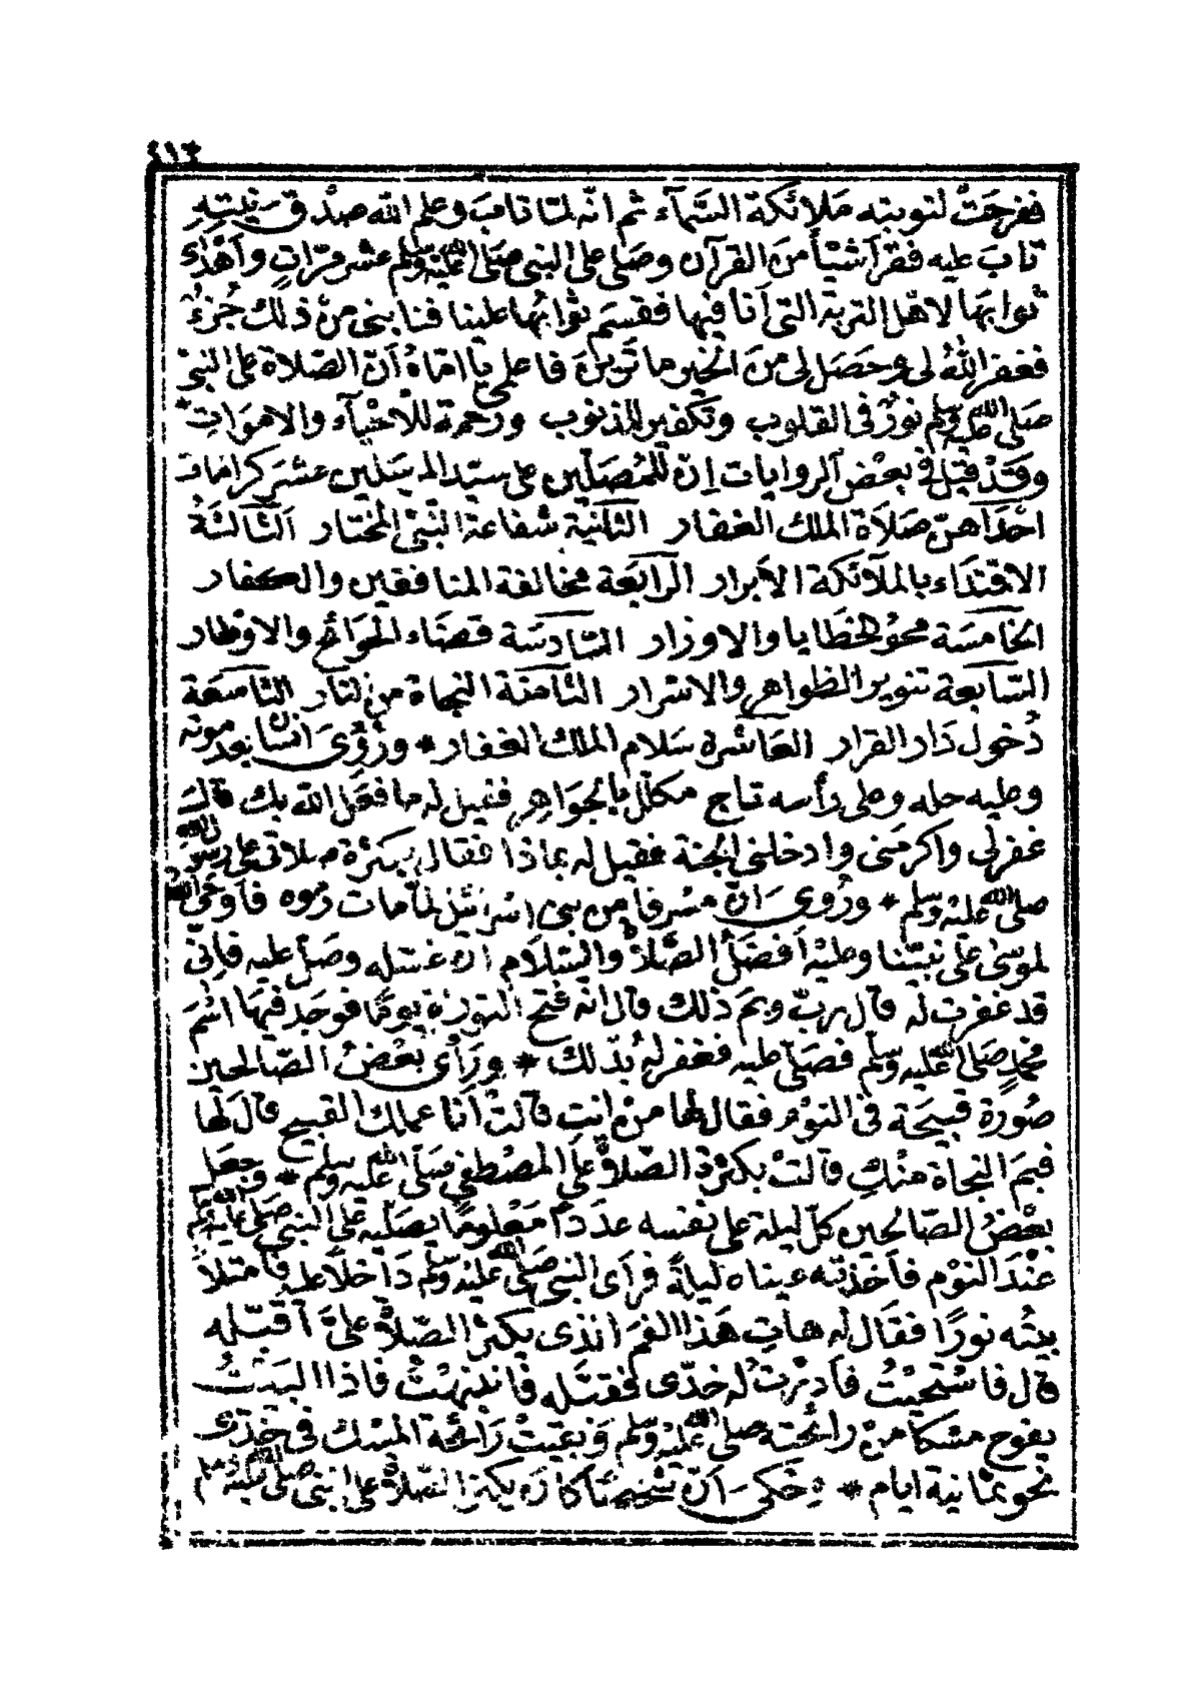 ٤١٣
ففرحَتْ لتوبته مَلائكة السَّمآء ثم انّه لمّا تابَ وعلم الله صدْق نيّتِهِ
تابَ عليه فقرأ شيْأً منَ القرآن وصَلى على النبى صَلى الله عليْه وسلم عشر مرّاتٍ وأهْدَاءَ
ثوابَهَا لاهْل التربة التى أنا فيها فقسمَ ثوابُها علينا فنابنى منْ ذلك جُزءٌ
فغفر اللهُ لى وحَصَل لى منَ الخيرِ ما تَريْنَ فاعلمى يا امّاهُ أنّ الصّلاة على النبىّ
صَلى الله عليه وسلم نورٌ فى القلوب وتكفير للذنوب ورحمة للأحْيآء والامْوَاتِ *
وقَدْ قيْل فى بعْض الروايات إنّ للمُصَلّين على سيّد المرسَلين عشر كرامات
احْدَاهنّ صَلاَة الملك الغفار الثّانية شفاعة النّبىّ المختار الثّالثَة
الاقتدَاء بالملآئكة الأبرار الرّابعَة مخالفة المنافقين والكفار
الخامسَة محوُ الخطَايا والاوزار السّادسَة قضَاء الحَوَائج والاوْطار
السّابعة تنوير الظواهر والاسْرار الثّامنَة النجاة من النّار التّاسعَة
دُخول دَار القرار العَاشرة سَلام الملك الغفار * ورُوىَ انسَانًا بعد موته
وعليه حله وعلى رأسه تاج مكلّل بالجَوَاهر فقيل له ما فعَل الله بك قال
غفر لى واكرمَنى وادخلنى الجنة فقيل له بماذا فقال بكثرة صلاتى على رسول الله
صلى الله عليْه وسلم * ورُوىَ أنّ مسْرفا من بنى اسْرائيل لمّا مات رمَوه فأوحَى الله
لموسى على نبيّنا وعليْه أفضَلُ الصَّلاة والسّلام انْ غسّله وصَلّ عليه فانّى
قد غفرت له قال يربّ وبمَ ذلك قال انّه فتح التورٰة يومًا فوَجد فيهَا اسْمَ
محمدٍ صَلى الله عليه وسلم فصَلّى عليه فغفر لهُ بذلكَ * ورَأى بعْضُ الصّالحين
صُورة قبيحَة فى النّوْم فقال لها منْ انتِ قالتْ أنا عملك القبيح قال لهَا
فبمَ النجاة منْكِ قالتْ بكثْرة الصّلاة علَى المصْطفى صَلّى الله عليْه وسلم * وجعَل
بعْضُ الصّالحين كلّ ليلة على نفسه عدَدًا مَعْلومًا يصَلّيه علَى النبى صَلى الله عليه وسلم
عنْدَ النوْم فأخذته عيناه ليلةً فرأى النبى صَلى الله عليْه وسلم دَاخلًا عليه فامتلأ
بيتُه نورًا فقَال له هاتِ هَذا الفمَ الذى يكثرُ الصّلاة علىّ أقبّله
قال فاسْتحيْتُ فأدرْتُ له خدّى فقبّله فانتبهتُ فاذا البَيْتُ
يفوح مسْكًا منْ رائحته صلى الله عليْه وسلم وَبقيَتْ رَائحَة المسْك فى خدّى
نحو ثمانية ايام * وَحُكىَ أنّ شخصًا كان يكثر الصّلاة على النبى صَلى الله عليه وسلم